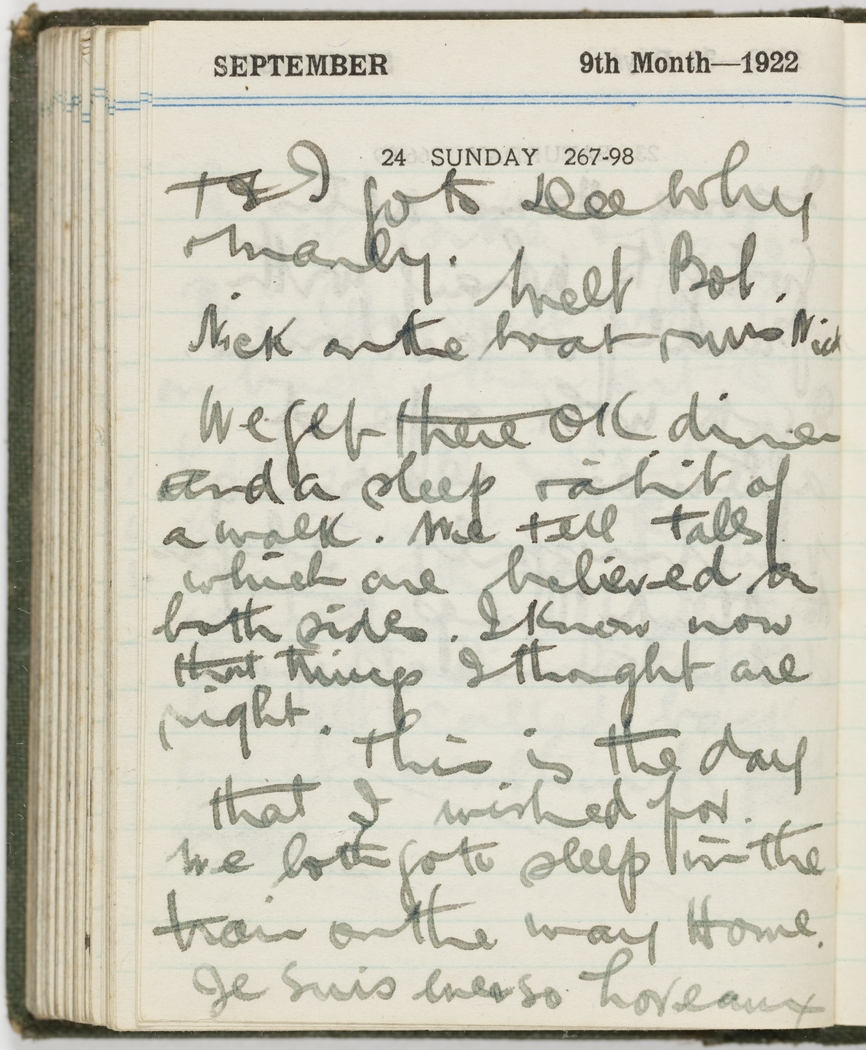 SEPTEMBER 9th Month—1922
24 SUNDAY 267-98
I go to see why
Manly. Meet Bob.
Nick on the boat runs Nick
We get there OK dinner
and a sleep & a bit of
a walk. We tell tales
which are believed on
both sides. I know now
that things I thought are
right.
This is the day
that I wished for.
We both go to sleep in the
train on the way Home.
Je suis ever so